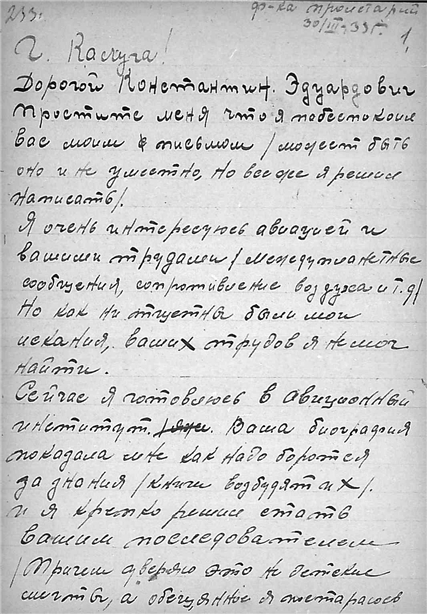 233.
ф-ка пролетарий
30/III-33г.
1
Г. Калуга!
Дорогой Константин. Эдуардович
Простите меня что я побеспокоил
вас моим письмом /может быть
оно и не уместно, но все же я решил
написать/.
Я очень интересуюсь авиацией и
вашими трудами /междупланетные
сообщения, сопротивление воздуха и т.д/
Но как ни тщетны были мои
искания, ваших трудов я не мог
найти.
Сейчас я готовлюсь в Авиционный
институт. Ваша биография
показала мне как надо боротся
за знания /книги возбудят их/.
и я крепко решил стать
вашим последователем
/Причем уверяю это не детские
мечты, а обещянные я постараюсь